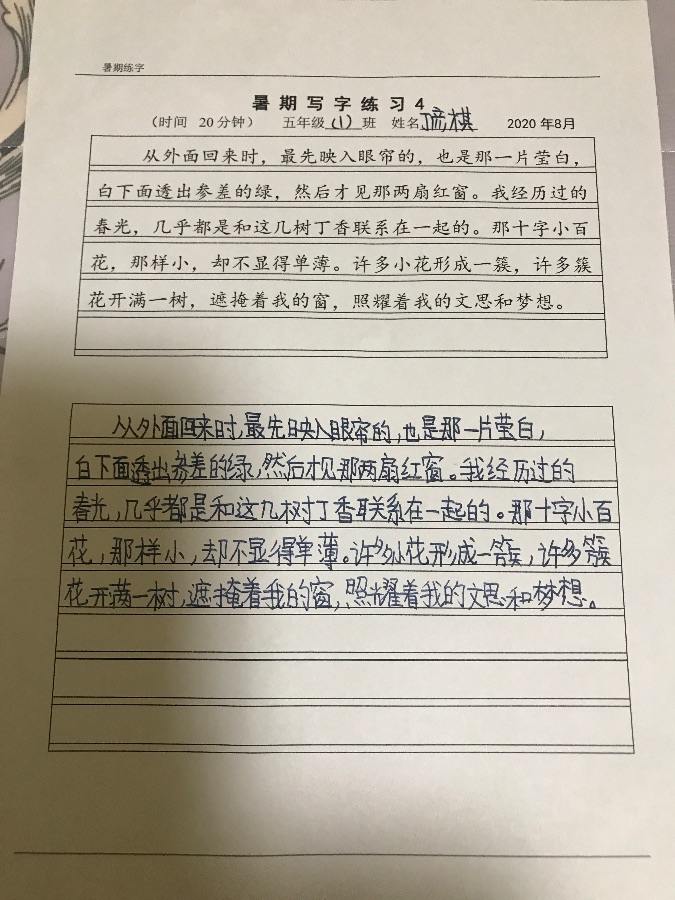 暑期练字
暑期写字练习4
（时间 20分钟） 五年级(1)班 姓名 琦棋 2020年8月
从外面回来时，最先映入眼帘的，也是那一片莹白，
白下面透出参差的绿，然后才见那两扇红窗。我经历过的
春光，几乎都是和这几树丁香联系在一起的。那十字小百
花，那样小，却不显得单薄。许多小花形成一簇，许多簇
花开满一树，遮掩着我的窗，照耀着我的文思和梦想。
从外面回来时，最先映入眼帘的，也是那一片莹白，
白下面透出参差的绿，然后才见那两扇红窗。我经历过的
春光，几乎都是和这几树丁香联系在一起的。那十字小百
花，那样小，却不显得单薄。许多小花形成一簇，许多簇
花开满一树，遮掩着我的窗，照耀着我的文思和梦想。